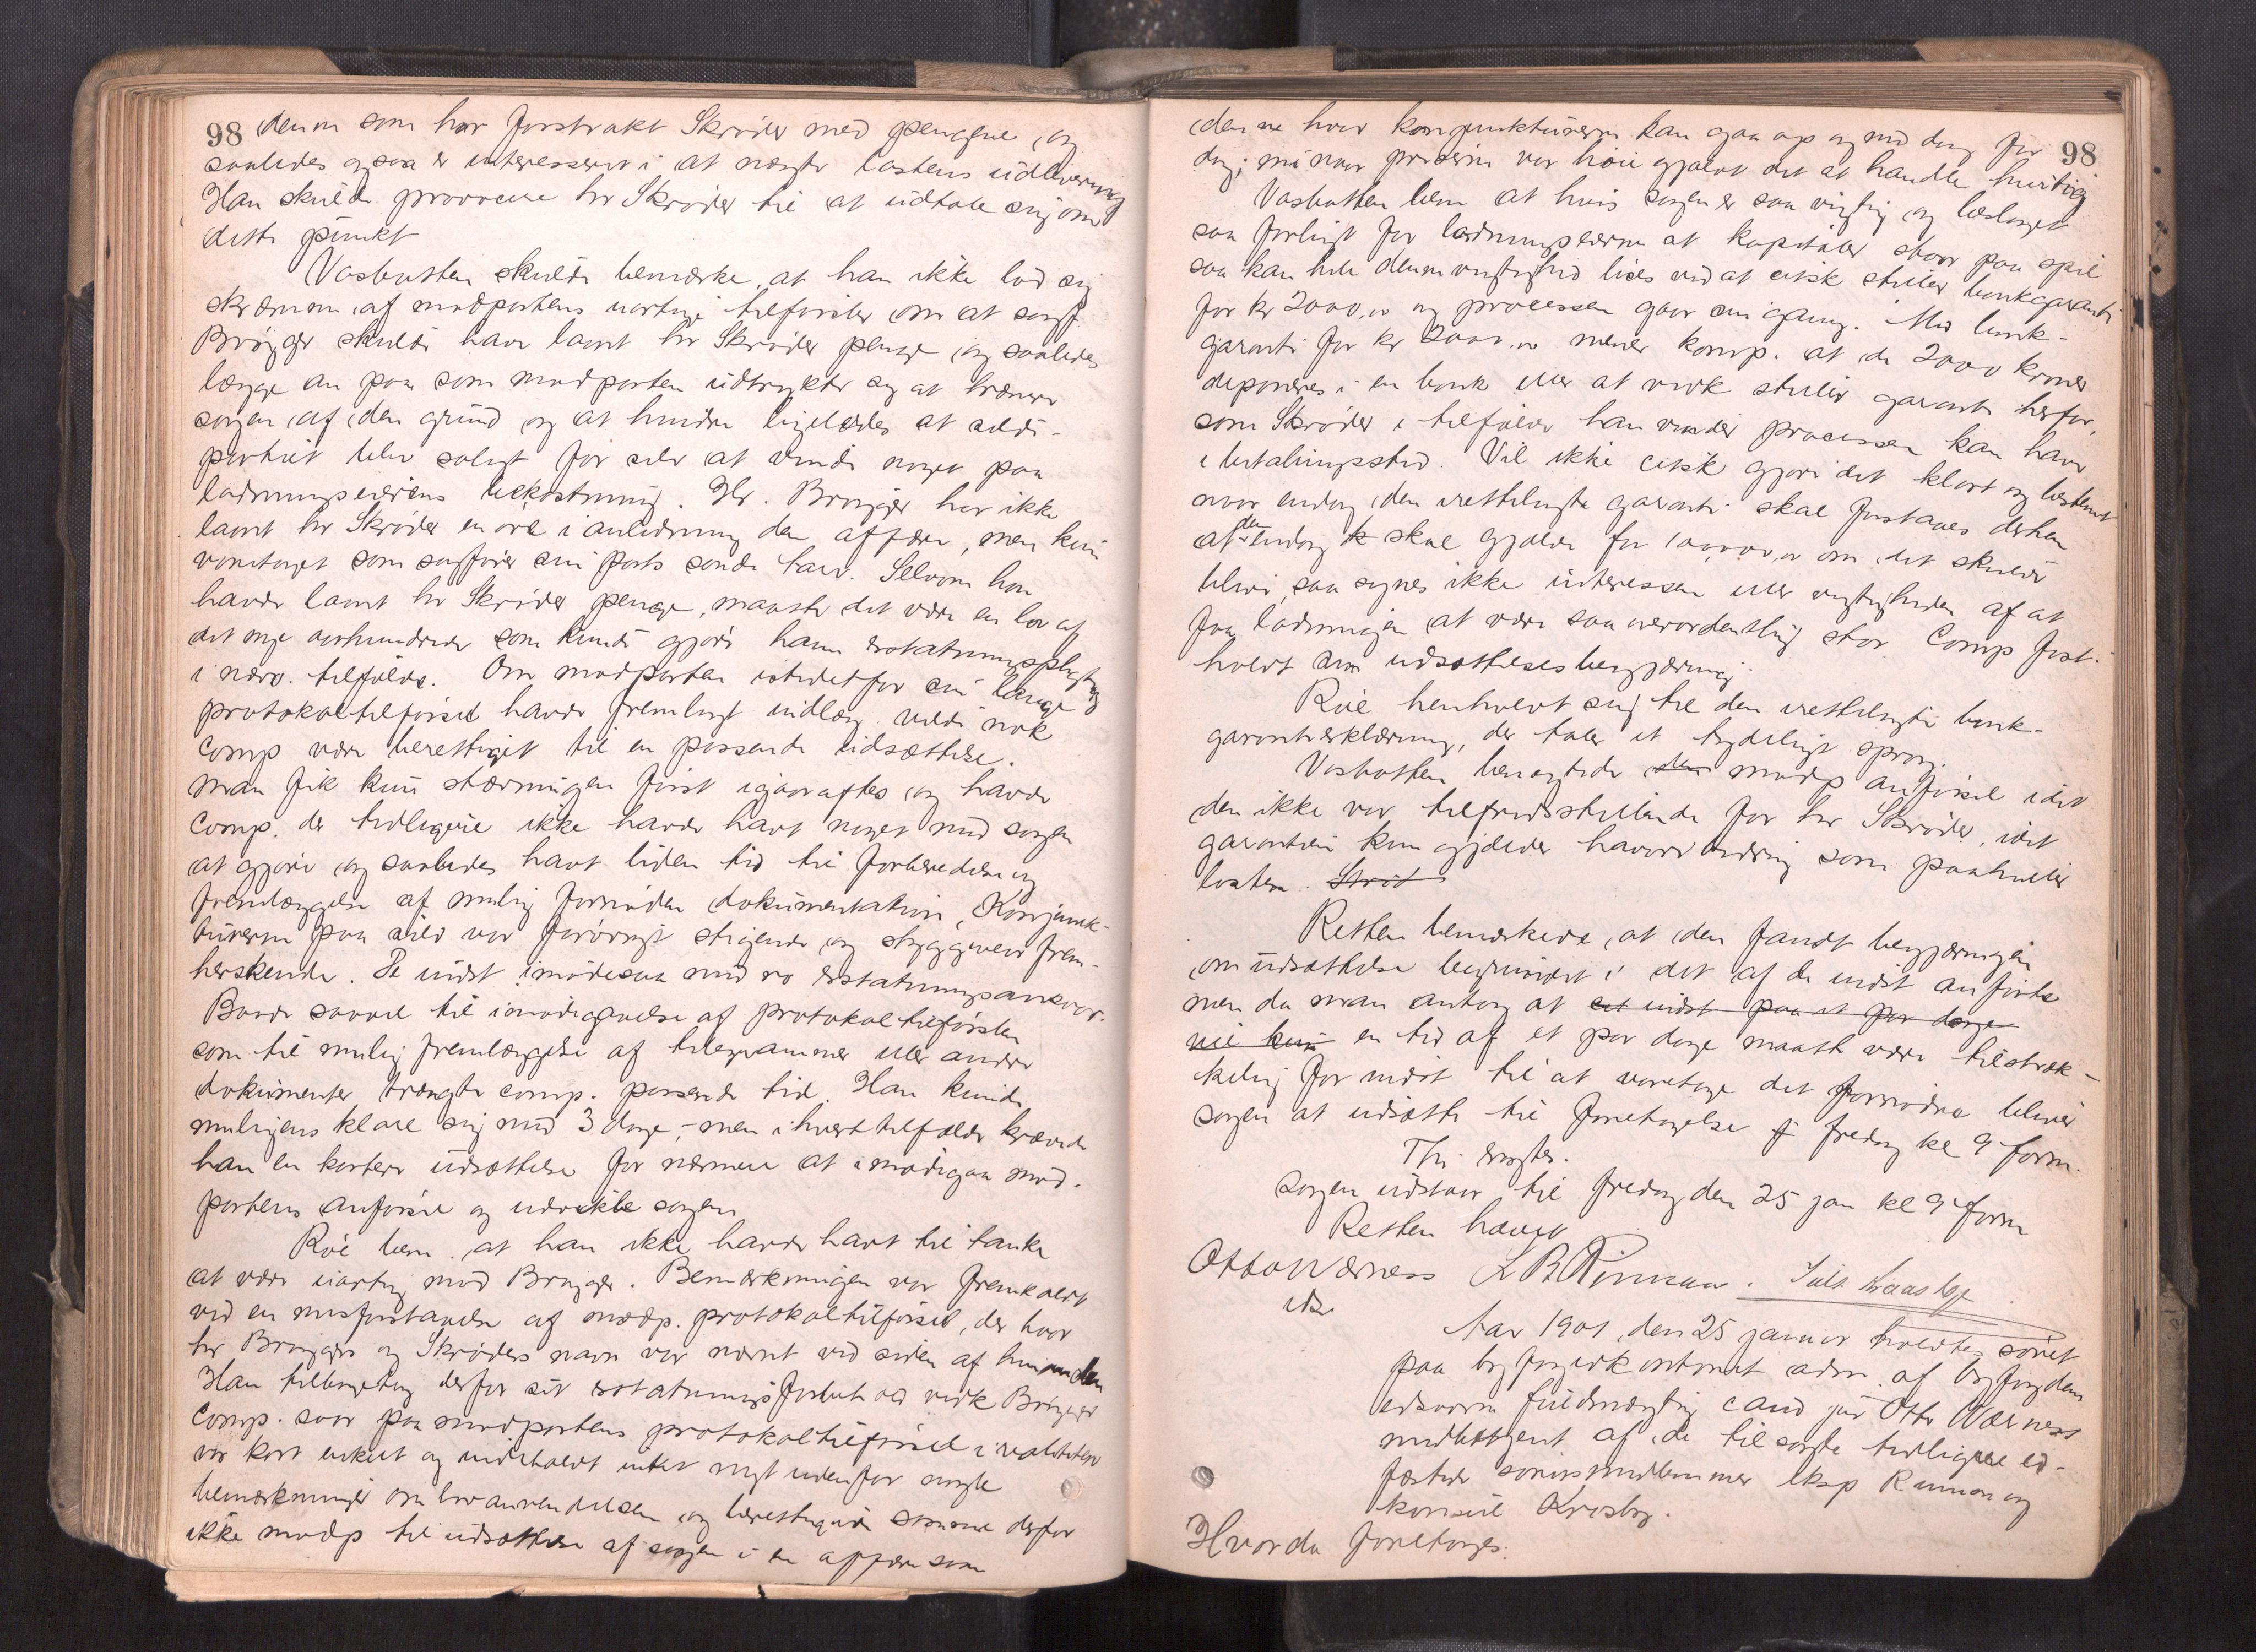 98 denne som har forstrakt Skrøder med pengene, og
saaledes ogsaa er interesseret i at nægte lastens udlevering
Han skulde provocere hr Skrøder til at udtale sig om
dette punkt
Vasbotten skulde bemærke, at han ikke lod sig
skræmme af modpartens uartige tilførsler om at sagf.
Brøgger skulde have laant hr Skrøder penge og saaledes
lægge an paa som modparten udtrykker sig at trænere
sagen af den grund og at hindre ligeledes at silde-
partiet blev solgt for selv at vinde noget paa
ladningseierens bekostning. Hr. Brøgger har ikke
laant hr Skrøder en øre i anledning den affære, men kun
varetaget som sagfører sin parts sande tarv. Selvom han
havde laant hr Skrøder penge, maatte det være en lov af
det nye aarhundrede som kunde gjøre ham erstatningspligtig
i nærv. tilfælde. Om modparten istedetfor sin lange
protokoltilførsel havde fremlagt indlæg vilde nok
comp være berettiget til en passende udsættelse.
man fik kun stævningen først igaaraftes og havde
comp. der tidligere ikke havde havt noget med sagen
at gjøre og saaledes havt liden tid til forberedelse og
fremlæggelse af mulig fornøden dokumentation, Konjunk-
turerne paa sild var forøvrigt stigende og styggeveir frem-
herskende. De indst imødesaa med ro erstatningsansvar.
Baade saavel til imødegaaelse af protokoltilførslen
som til mulig fremlæggelse af telegrammer eller andre
dokumenter trængte comp. passende tid. Han kunde
muligens klare sig med 3 dage, - men i hvert tilfælde krævede
han en kortere udsættelse for nærmere at imødegaa mod-
partens anførsel og udvikle sagen
Roe bem. at han ikke havde havt til tanke
at være uartig mod Brøgger. Bemærkningen var fremkaldt
ved en misforstaaelse af modp. protokoltilførsel, der hvor
hr Brøggers og Skrøders navn var nævnt ved siden af hinanden
Han tilbagetog derfor sit erstatningsforbehold vedk Brøgger
Comp. svar paa modpartens protokoltilførsel i realiteten
var kort enkelt og indeholdt intet nyt udenfor nogle
bemærkninger om lovanvendelsen og berettigede derfor
ikke modp til udsættelse af sagen i en affære som
98
denne hvor konjunkturerne kan gaa op og ned dag for
dag; nu naar priserne var høie gjaldt det at handle hurtig
Vasbotten bem at hvis sagen er saa vigtig og beslaget
saa farligt for ladningseierne at kapitaler staar paa spil
saa kan hele denne vigtighed løses ved at citsk stiller bankgaranti
for kr 2000,00 og processen gaar sin gang. Med bank-
garanti for kr 2000,00 mener komp. at de 2000 kroner
deponeres i en bank eller at vedk stiller garanti herfor,
som Skrøder i tilfælde han vinder processen kan have
i betalingssted. Vil ikke citsk gjøre det klart og bestemt
naar endog den irettelagte garanti skal forstaaes derhen
at den endog skal gjælde for 100,000,00 om det skulde
blive, saa synes ikke interessen eller vigtigheden af at
faa ladningen at være saa overordentlig stor. Comp fast-
holdt sin udsættelsesbegjæring.
Roe henholdt sig til den irettelagte bank-
garantierklæring, der taler et tydeligt sprog.
Vasbotten benegtede modp anførsel idet
den ikke var tilfredsstillende for hr Skrøder, idet
garantien kun gjælder havari bidrag som paahviler
lasten.
Retten bemærkede, at den fandt begjæringen
om udsættelse begrundet i det af de indst anførte
men da man antog at et indst paa et par dage
vil kun en tid af et par dage maatte være tilstræk-
kelig for indst til at varetage det fornødne bliver
sagen at udsætte til foretagelse fredag kl 9 form.
Thi eragtes.
Sagen udstaar til fredag den 25 jan kl 9 form
Retten hævet
Otto Wærness
Aar 1901, den 25 januar holdtes søret
paa byfogedkontoret adm. af byfogdens
edsvorne fuldmægtig cand jur Otto Wærness
medbetjent af de tilsagte tidligere ed-
fæstede søretsmedlemmer eksp Rinnan og
konsul Krosby.
Hvorda foretoges: